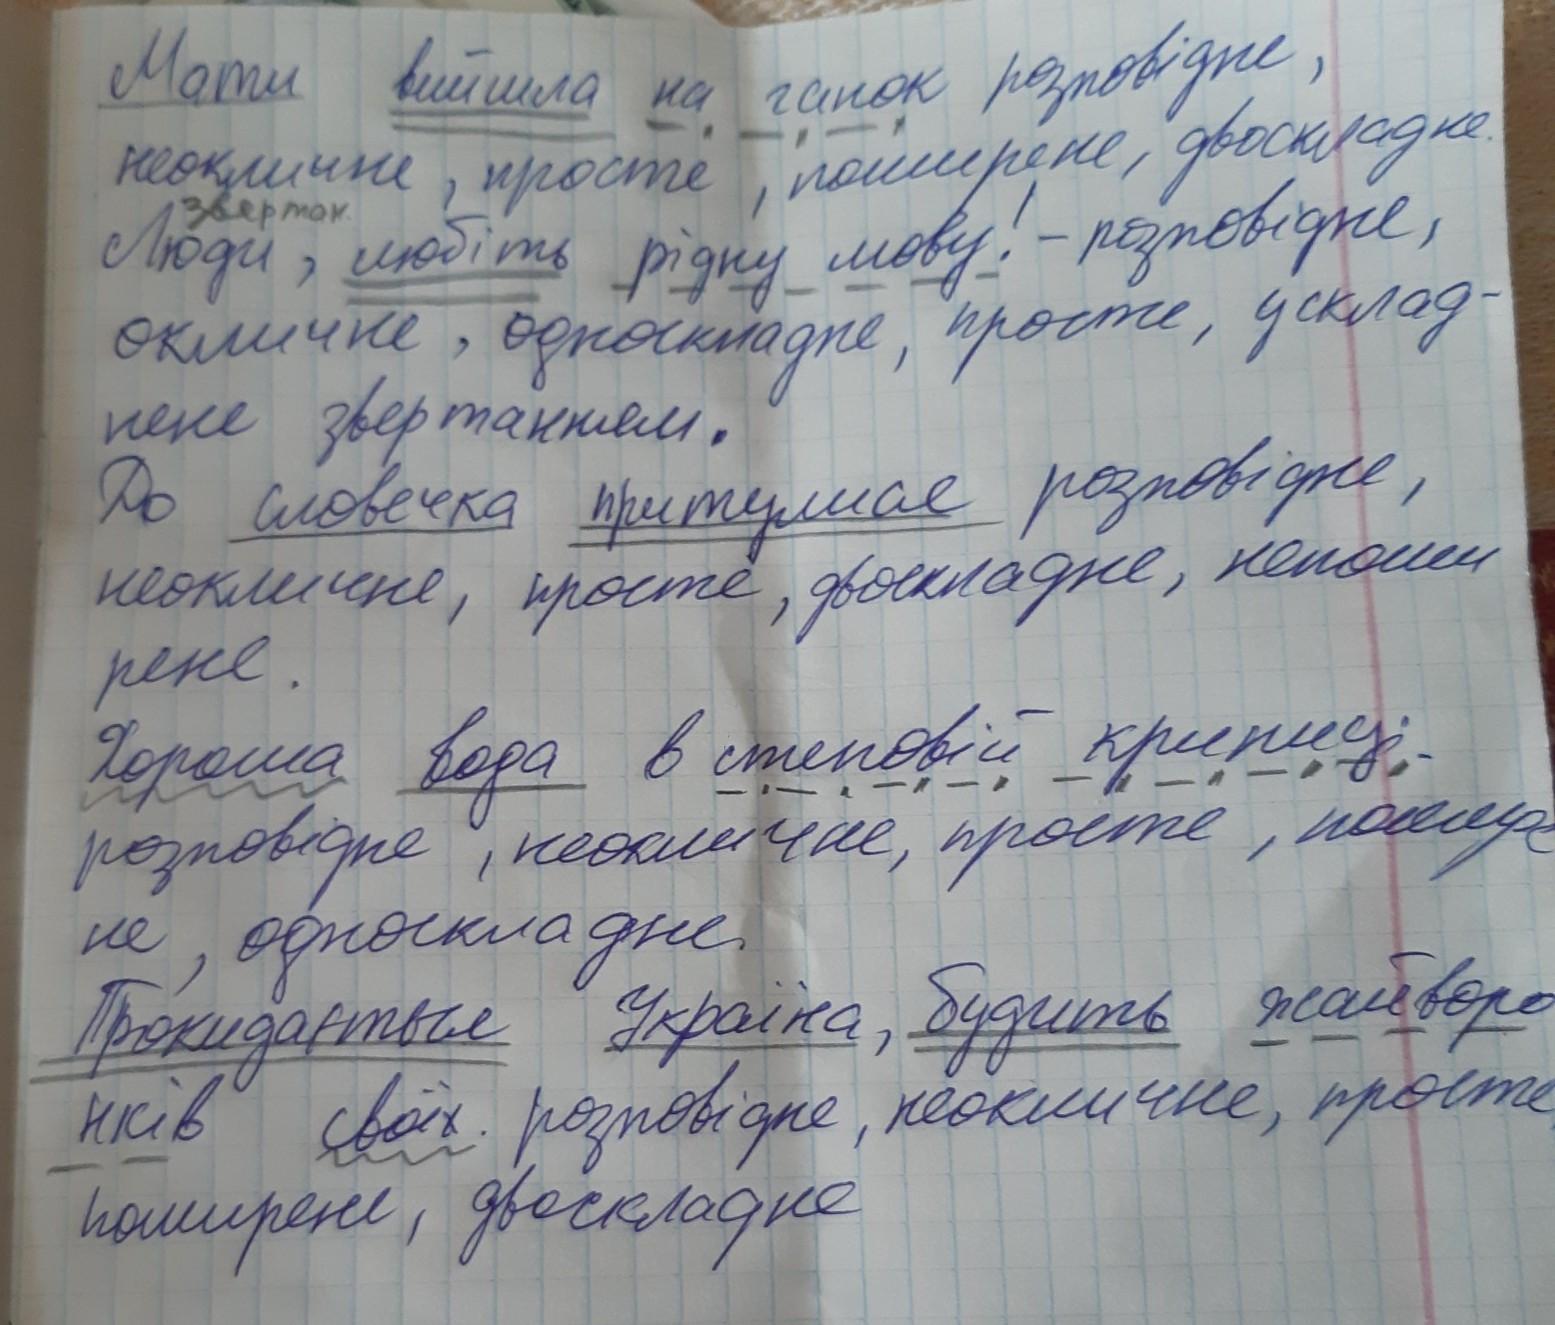 Мати вийшла на ганок розповідне,
неокличне, просте, поширене, двоскладне.
звертан.
Люди, любіть рідну мову! – розповідне,
окличне, односкладне, просте, усклад-
нене звертанням.
До словечка притуляє розповідне,
неокличне, просте, двоскладне, непоши
рене.
Хороша вода в степовій криниці.
розповідне, неокличне, просте, пошире
не, односкладне.
Прокидається Україна, будить жайворо
нків своїх. розповідне, неокличне, просте,
поширене, двоскладне